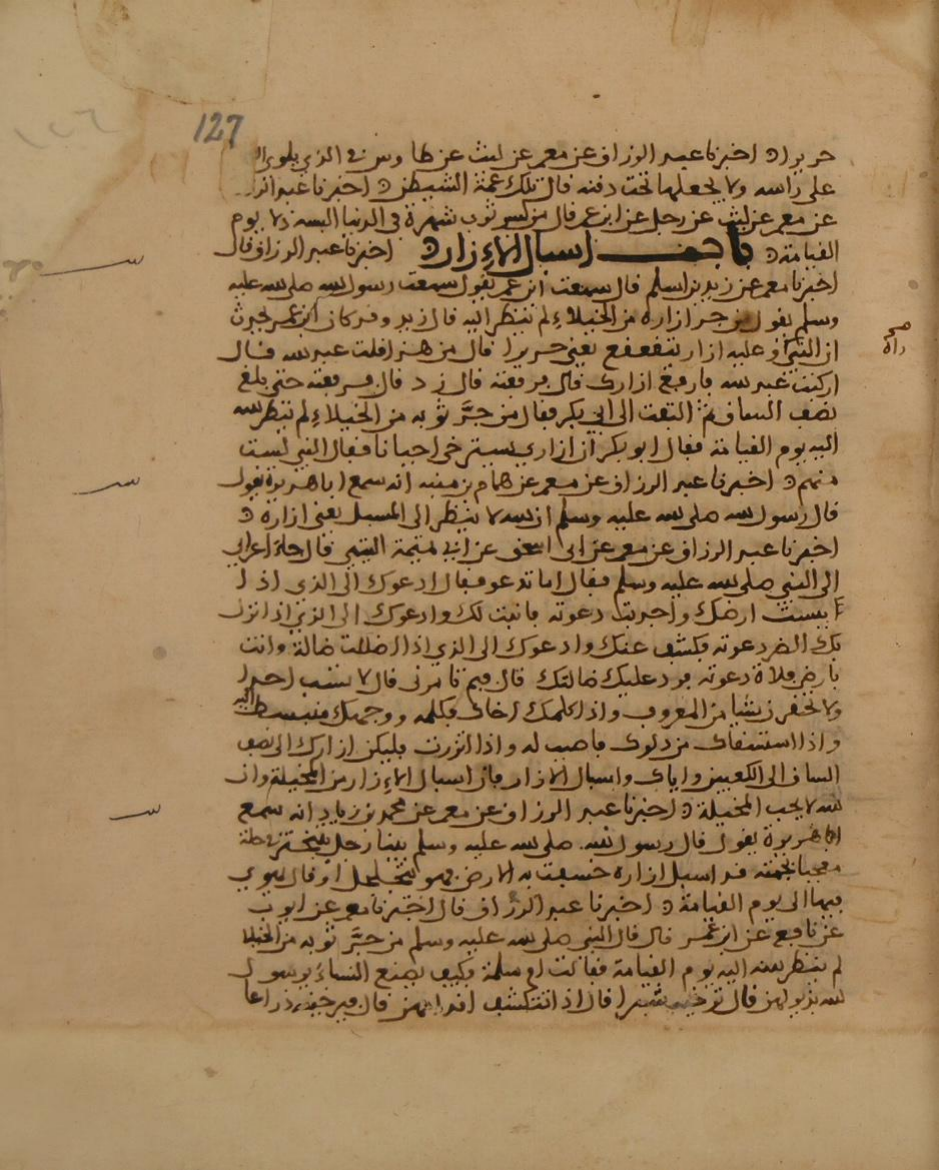 127
حريرا اخبرنا عبد الرزاق عن معمر عن ليث عن طاوس في الذي يلوي
على راسه ولا يجعلها تحت ذقنه قال تلك عمة الشيطن اخبرنا عبد الرز
عن معمر عن ليث عن رجل عن ابن عمر قال من لبس ثوب شهرة في الدنيا البسه ذلا يوم
القيامة باب اسبال الازار اخبرنا عبد الرزاق قال
اخبرنا معمر عن زيد بن اسلم قال سمعت ابن عمر يقول سمعت رسول الله صلى الله عليه
وسلم يقول من جر ازاره من الخيلاء لم ينظر الله اليه قال زيد وقد كان ابن عمر يحدث
ان النبي عليه ازار يتقعقع يعني جديدا قال من هذا فقلت عبد الله فقال
ان كنت عبد الله فارفع ازارك قال فرفعته قال زد قال فرفعته حتى بلغ
نصف الساق ثم التفت الى ابي بكر فقال من جر ثوبه من الخيلاء لم ينظر الله
اليه يوم القيامة فقال ابو بكر ان ازاري يسترخي احيانا فقال النبي لست
منهم اخبرنا عبد الرزاق عن معمر عن همام بن منبه انه سمع ابا هريرة يقول
قال رسول الله صلى الله عليه وسلم ان الله لا ينظر الى المسبل يعني ازاره
اخبرنا عبد الرزاق عن معمر عن ابي اسحق عن ابي تميمة التيمي قال جاء اعرابي
الى النبي صلى الله عليه وسلم فقال اما تدعو فقال ادعوك الى الذي اذا
يبست ارضك واجدبت دعوته فانبت لك وادعوك الى الذي اذا نزل
بك الضر دعوته فكشف عنك وادعوك الى الذي اذا اضللت ضالة وانت
بارض فلاة دعوته فرد عليك ضالتك قال فبم تامرني قال لا تسب احدا
ولا تحقرن شيا من المعروف واذا كلمك اخاك فكلمه ووجهك منبسط اليه
واذا استسقاك من دلوك فاصبب له واذا اتزرت فليكن ازارك الى نصف
الساق الى الكعبين واياك واسبال الازار فان اسبال الازار من المخيلة وان
الله لا يحب المخيلة اخبرنا عبد الرزاق عن معمر عن محمد بن زياد انه سمع
ابا هريرة يقول قال رسول الله صلى الله عليه وسلم بينا رجل يتبختر في حلة
معجبا بجمته قد اسبل ازاره خسفت به الارض فهو يتجلجل او قال يهوي
فيها الى يوم القيامة اخبرنا عبد الرزاق قال اخبرنا معمر عن ايوب
عن نافع عن ابن عمر قال قال النبي صلى الله عليه وسلم من جر ثوبه من الخيلا
لم ينظر الله اليه يوم القيامة فقالت ام سلمة فكيف يصنع النساء يرسول
الله بذيولهن قال ترخينه شبرا قال اذا تنكشف اقدامهن قال فيرخينه ذراعا